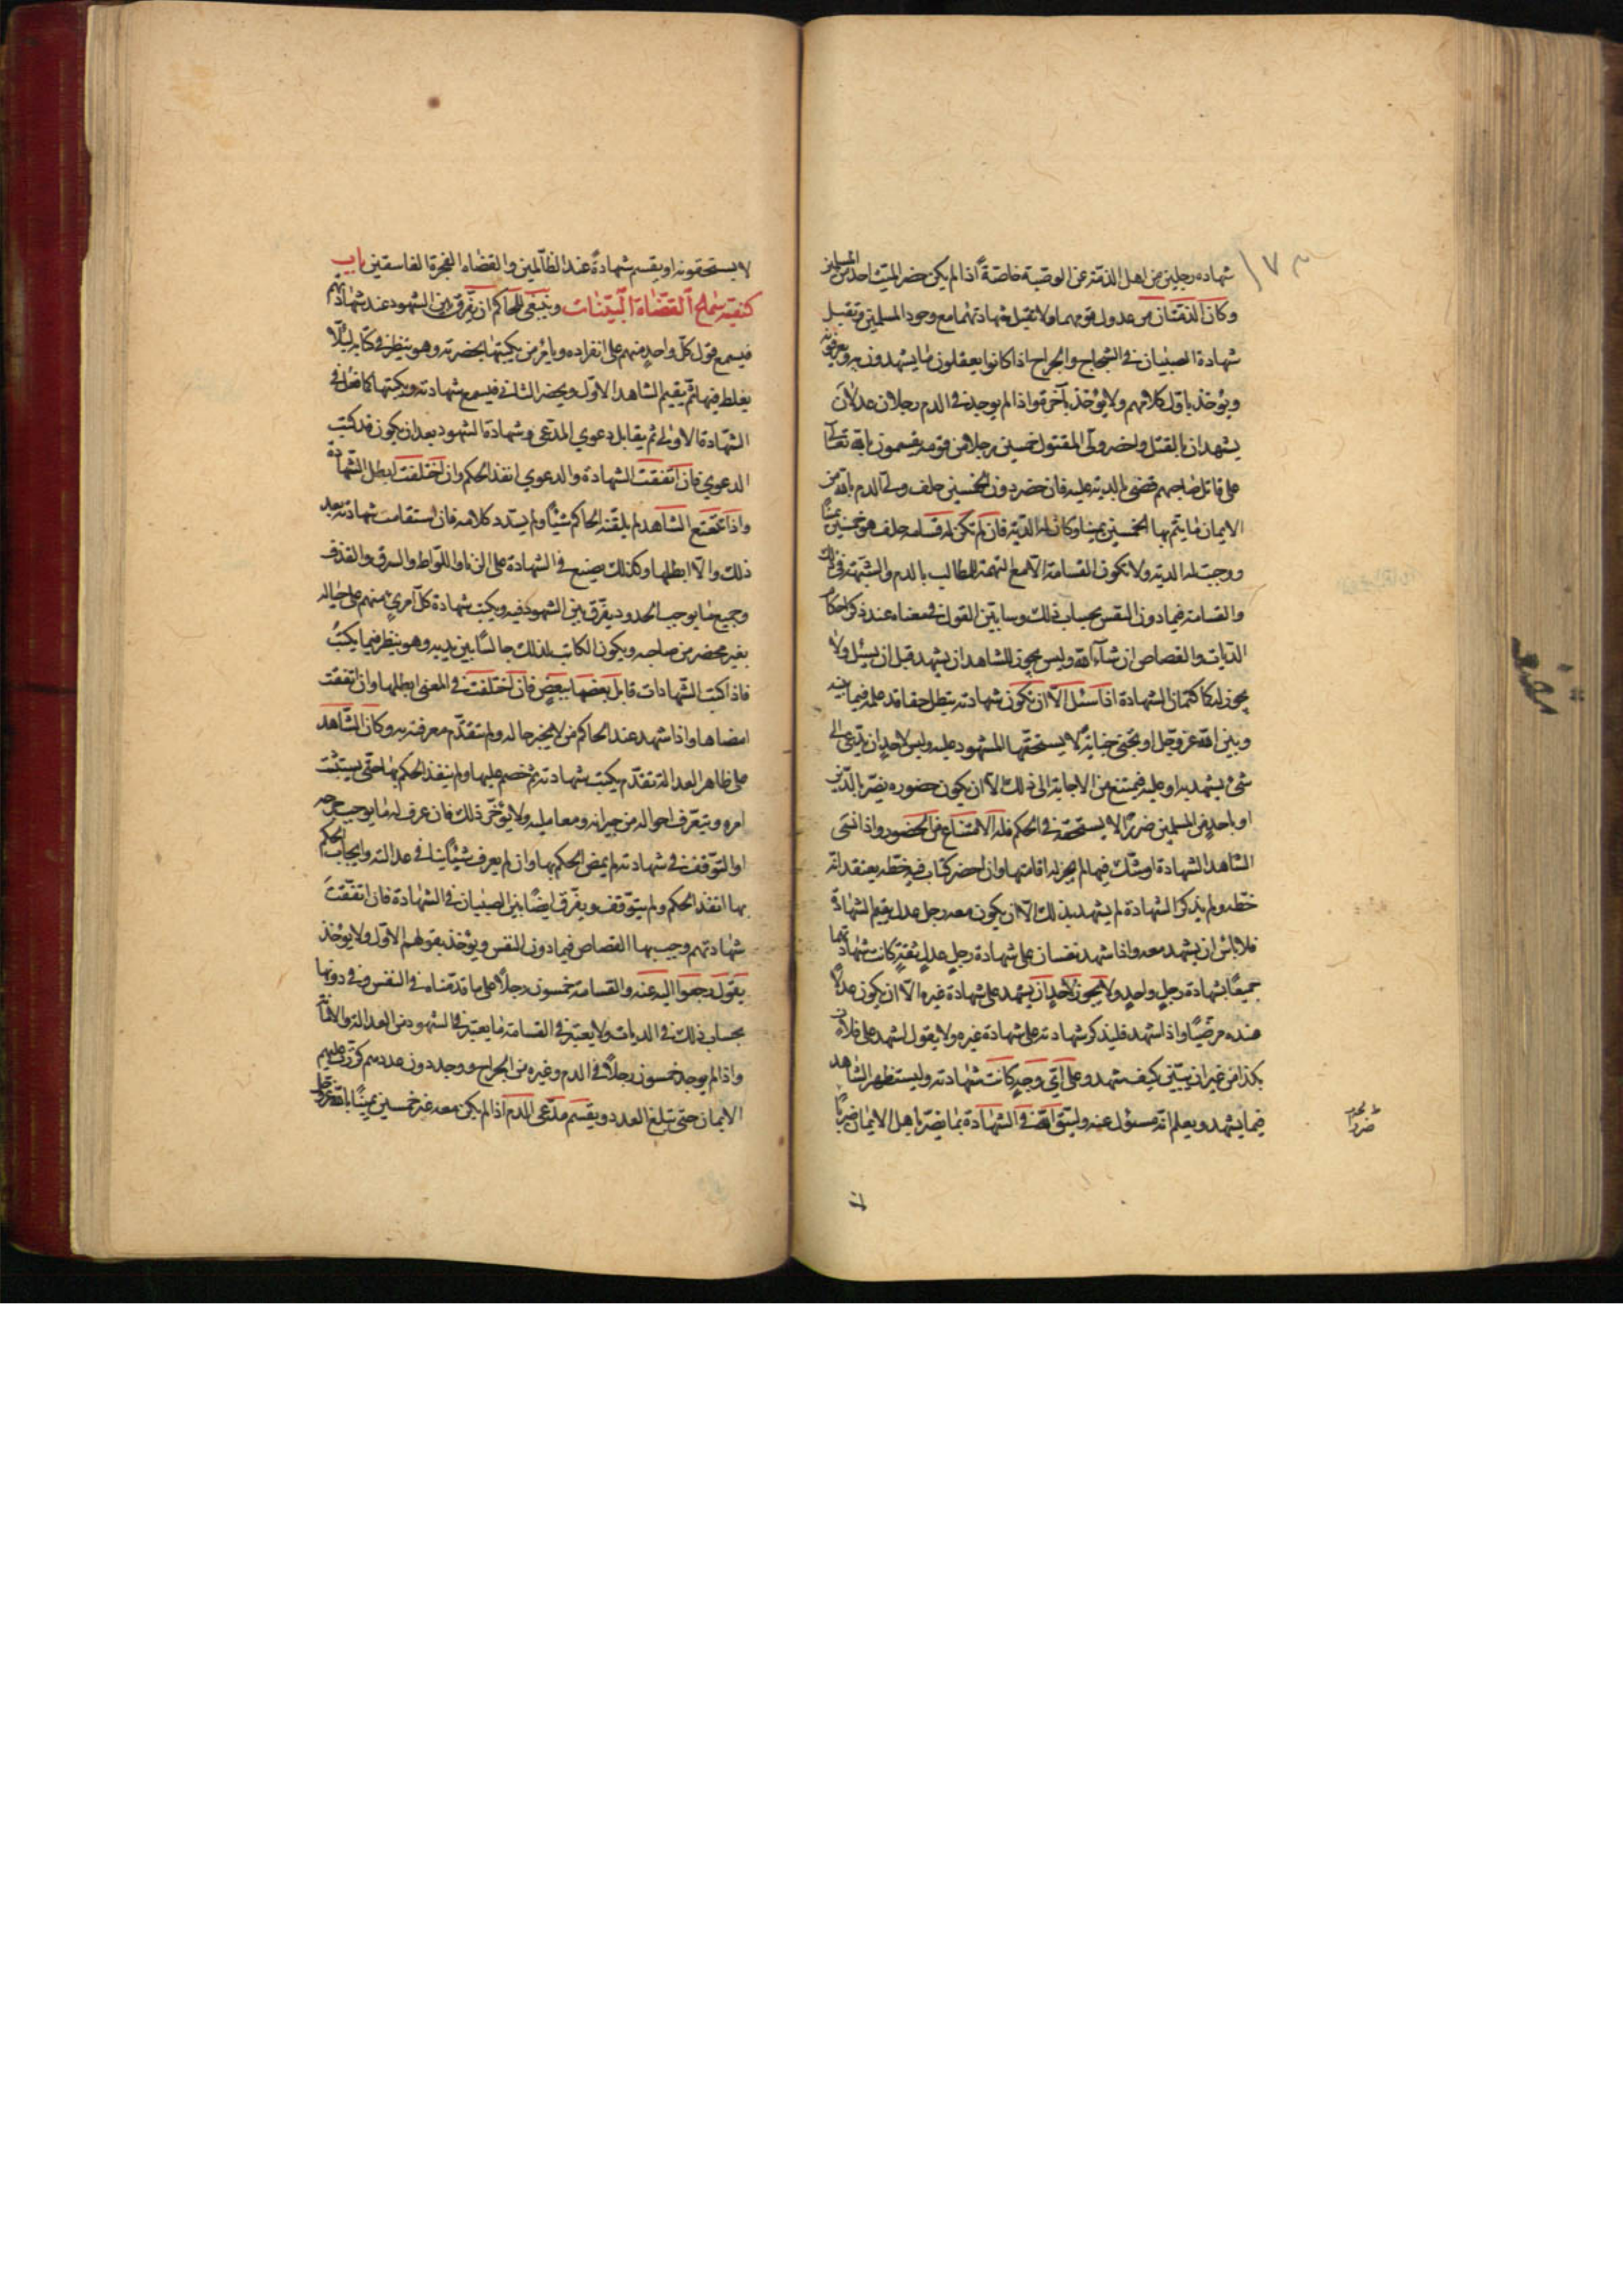 شهاده رجلين من اهل الذمة عن الوصية خاصة اذا لم يكن حضر الميت احد من المسلمين
وكان الذميان من عدول قومهما ولا تقبل شهادتهما مع وجود المسلمين وتقبل
شهادة الصبيان فى الشجاج والجراح اذا كانوا يعقلون ما يشهدون به ويعرفونه
ويؤخذ باول كلامهم ولا يؤخذ بآخره واذا لم يوجد فى الدم رجلان عدلان
يشهدان بالقتل واحضر ولى المقتول خمسين رجلا من قومه يقسمون بالله تعالى
على قاتل صاحبهم قضى له بالدية عليه فان حضر دون الخمسين حلف ولى الدم بالله من
الايمان ما يتم بها الخمسين يمينا وكان له الدية فان لم تكن له قسامه حلف هو خمسين يمينًا
ووجبت له الدية ولا تكون القسامة الا مع التهمة للطالب بالدم والشبهة فى ذلك
والقسامة فيما دون النفس بحساب ذلك وسابين القول فى معناه عند ذكر احكام
الديات والقصاص ان شآء الله وليس يجوز للشاهد ان يشهد قبل ان يسئل ولا
يجوز له كتمان الشهادة اذا سئل الا ان تكون شهادته يبطل حقا قد علمه فيما بينه
وبين الله عز وجل او تجنى جناية لا يستحقها المشهود عليه وليس لاحد ان يدعى الى
شئ ليشهد به او عليه فيمتنع من الاجابة الى ذلك الا ان يكون حضوره يضر بالدين
او باحد من المسلمين ضررًا لا يستحقه فى الحكم فله الامتناع من الحضور واذا نسى
الشاهد الشهادة او شك فيها لم يجز له اقامتها وان احضر كتاب فيه خطه يعتقد انه
خطه ولم يذكر الشهادة لم يشهد بذلك الا ان يكون معه رجل عدل يقيم الشهادة
فلا باس ان يشهد معه واذا شهد نفسان على شهادة رجل عدل ثقة كانت شهادتهما
جميعًا بشهادة رجل واحد ولا يجوز لاحد ان يشهد على شهادة غيره الا ان يكون عدلاً
عنده مرضيًا واذا شهد فليذكر شهادته على شهادة غيره ولا يقول اشهد على فلان
بكذا من غير ان يبين كيف شهد وعلى اى وجه كانت شهادته وليستظهر الشاهد
فيما يشهد ويعلم انه مسئول عنه وليتق الله فى الشهادة بما يضر باهل الايمان ضررًا
لا يستحقونه او يقيم شهادة عند الظالمين والقضاه الفجرة الفاسقين باب
كيفيه سماع القضاة البينات وينبغى للحاكم ان يفرق بين الشهود عند شهادتهم
فيسمع قول كل واحد منهم على انفراده ويامر من يكتبها بحضرته وهو ينظر فى كتابه لئلا
يغلط فيها ثم يقيم الشاهد الاول ويحضر الثانى فيسمع شهادته ويكتبها كما فعل فى
الشهادة الاولى ثم يقابل دعوي المدعى وشهادة الشهود بعد ان يكون قد كتب
الدعوي فان اتفقت الشهادة والدعوي انفذ الحكم وان اختلفت ابطل الشهادة
واذا تتعتع الشاهد لم يلقنه الحاكم شيئًا ولم يسدد كلامه فان استقامت شهادته بعد
ذلك والا ابطلها وكذلك يصنع فى الشهادة على الزنا واللواط والسرق والقذف
وجميع ما يوجب الحدود يفرق بين الشهود فيه ويكتب شهادة كل امرئ منهم على حياله
بغير محضر من صاحبه ويكون الكاتب لذلك جالسًا بين يديه وهو ينظر فيما يكتبُ
فاذا كتب الشهادات قابل بعضها ببعض فان اختلفت فى المعنى ابطلها وان اتفقت
امضاها واذا شهد عند الحاكم من لا يخبر حاله ولم تتقدم معرفته به وكان الشاهد
على ظاهر العدالة تقدم بكتب شهادته ثم ختم عليها ولم ينفذ الحكم بها حتى يستثبت
امره ويتعرف احواله من جيرانه ومعامليه ولا يؤخر ذلك فان عرف له ما يوجب جرحه
او التوقف فى شهادته لم يمض الحكم بها وان لم يعرف شيئًا ينافى عدالته وايجاب الحكم
بها انفذ الحكم ولم يتوقف ويفرق ايضًا بين الصبيان فى الشهادة فان اتفقت
شهادتهم وجب بها القصاص فيما دون النفس ويؤخذ بقولهم الاول ولا يؤخذ
بقول رجعوا اليه عنه والقسامة خمسون رجلاً على ما قدمناه فى النفس وفى دونها
بحساب ذلك فى الديات ولا يعتبر فى القسامة ما يعتبر فى الشهود من العدالة والامانة
واذا لم يوجد خمسون رجلاً فى الدم وغيره من الجراح ووجد دون عددهم كررت عليهم
الايمان حتى تبلغ العدد ويقسم مدعى الدم اذا لم يكن معه غيره خمسين يمينًا بالله عز وجل